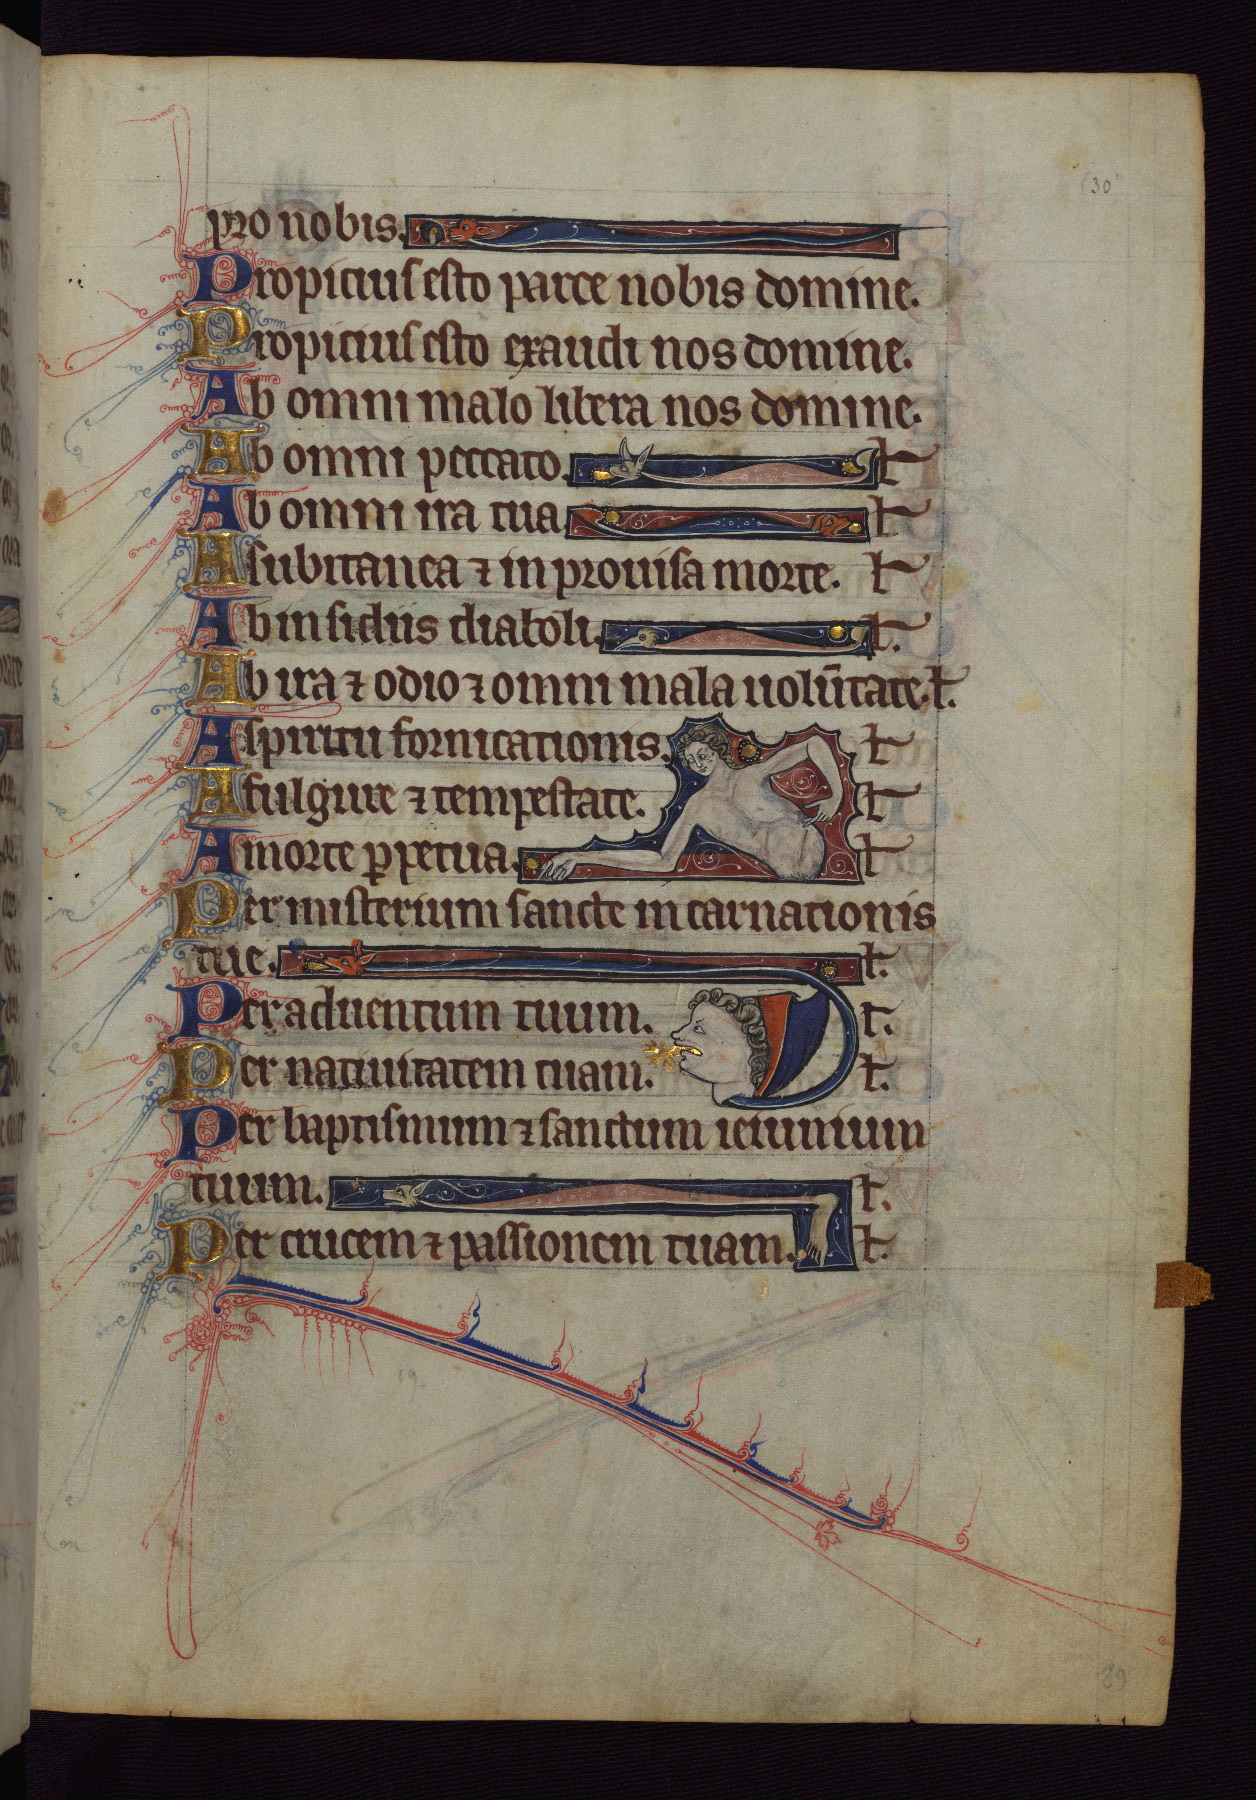 30
pro nobis.
Propicius esto parce nobis domine.
Propicius esto exaudi nos domine.
Ab omni malo libera nos domine.
Ab omni peccato. l
Ab omni ira tua l
A subitanea ⁊ in prouisa morte. l
Ab insidiis diaboli. l.
Ab ira ⁊ odio ⁊ omni mala uolūtate. l.
A spiritu fornicationis. l
A fulgure ⁊ tempestate. l
A morte ꝑpetua. l
Per misterium sancte incarnationis
tue. l.
Per aduentum tuum. l.
Per natiuitatem tuam. l.
Per baptismum ⁊ sanctum ieiunium
tuum. l.
Per crucem ⁊ passionem tuam. l.
19
29